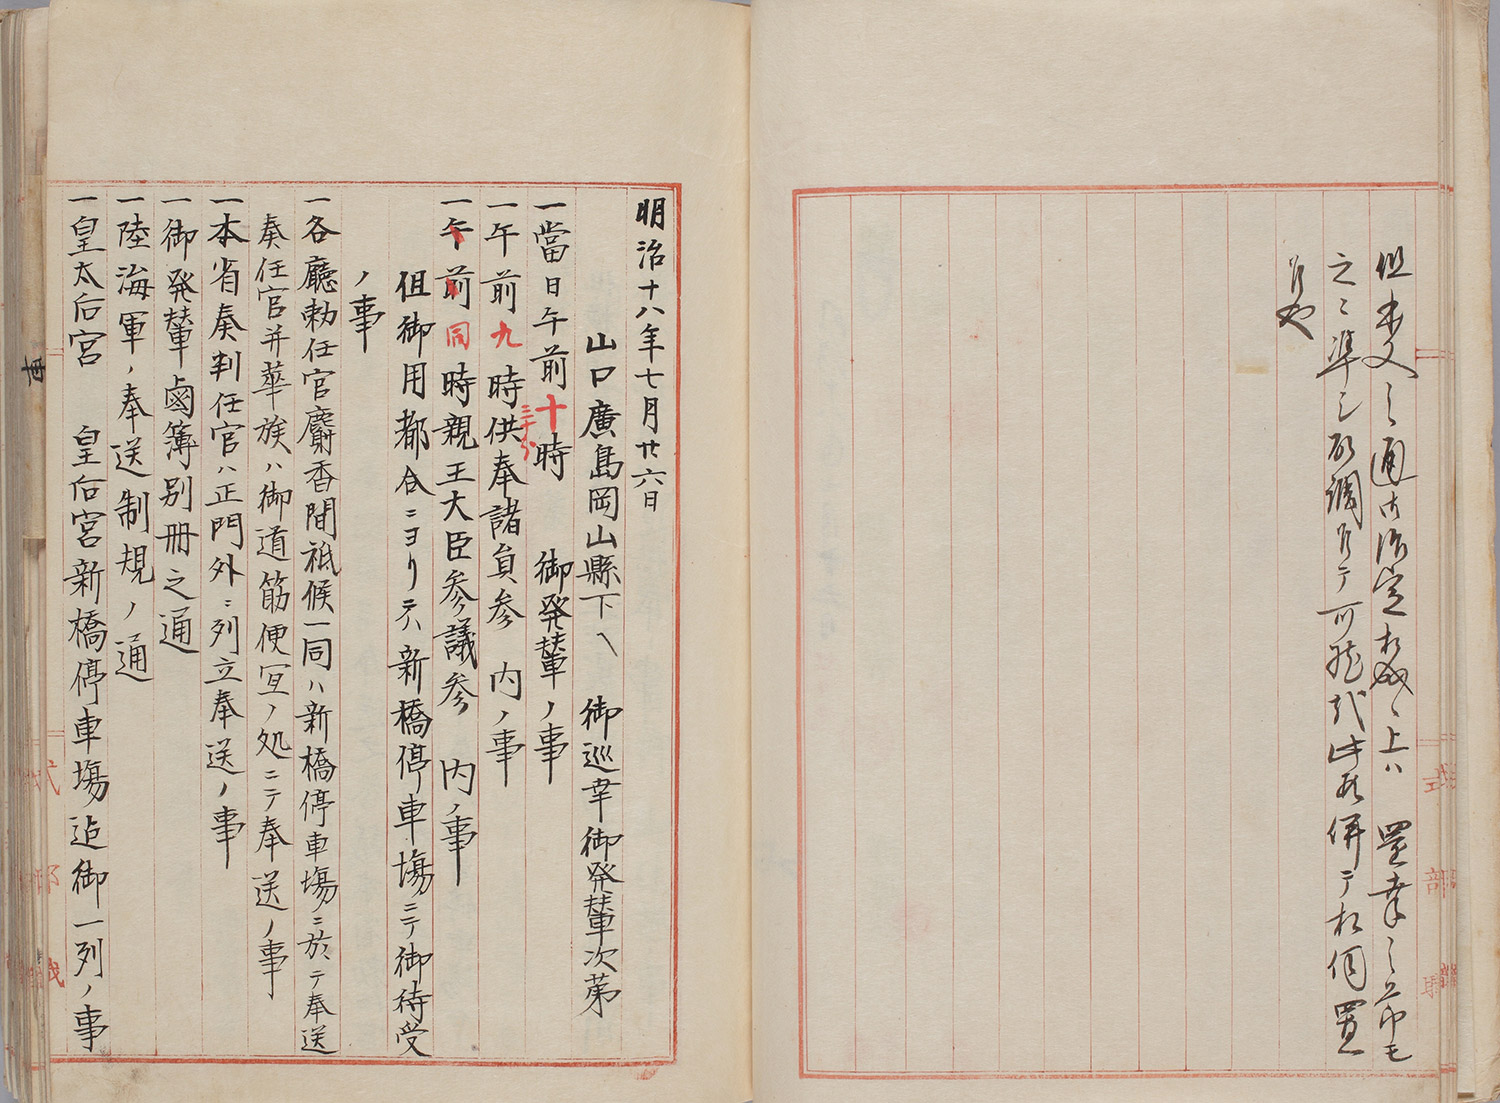 但本文之通御治定相成候上ハ 還幸之節モ
之ニ準シ取調
明治十八年七月廿六日
山口廣島岡山縣下ヘ 御巡幸御発輦次第
一當日午前十時三十分 御発輦ノ事
一午前九時供奉諸員参 内ノ事
一午前同時親王大臣参議参 内ノ事
但御用都合ニヨリテハ新橋停車場ニテ御待受
ノ事
一各廳勅任官麝香間祗候一同ハ新橋停車場ニ於テ奉送
奏任官并華族ハ御道筋便宜ノ処ニテ奉送ノ事
一本省奏判任官ハ正門外ニ列立奉送ノ事
一御発輦鹵簿別冊之通
一陸海軍ノ奉送制規ノ通
一皇太后宮 皇后宮新橋停車場迄御一列ノ事
式部職